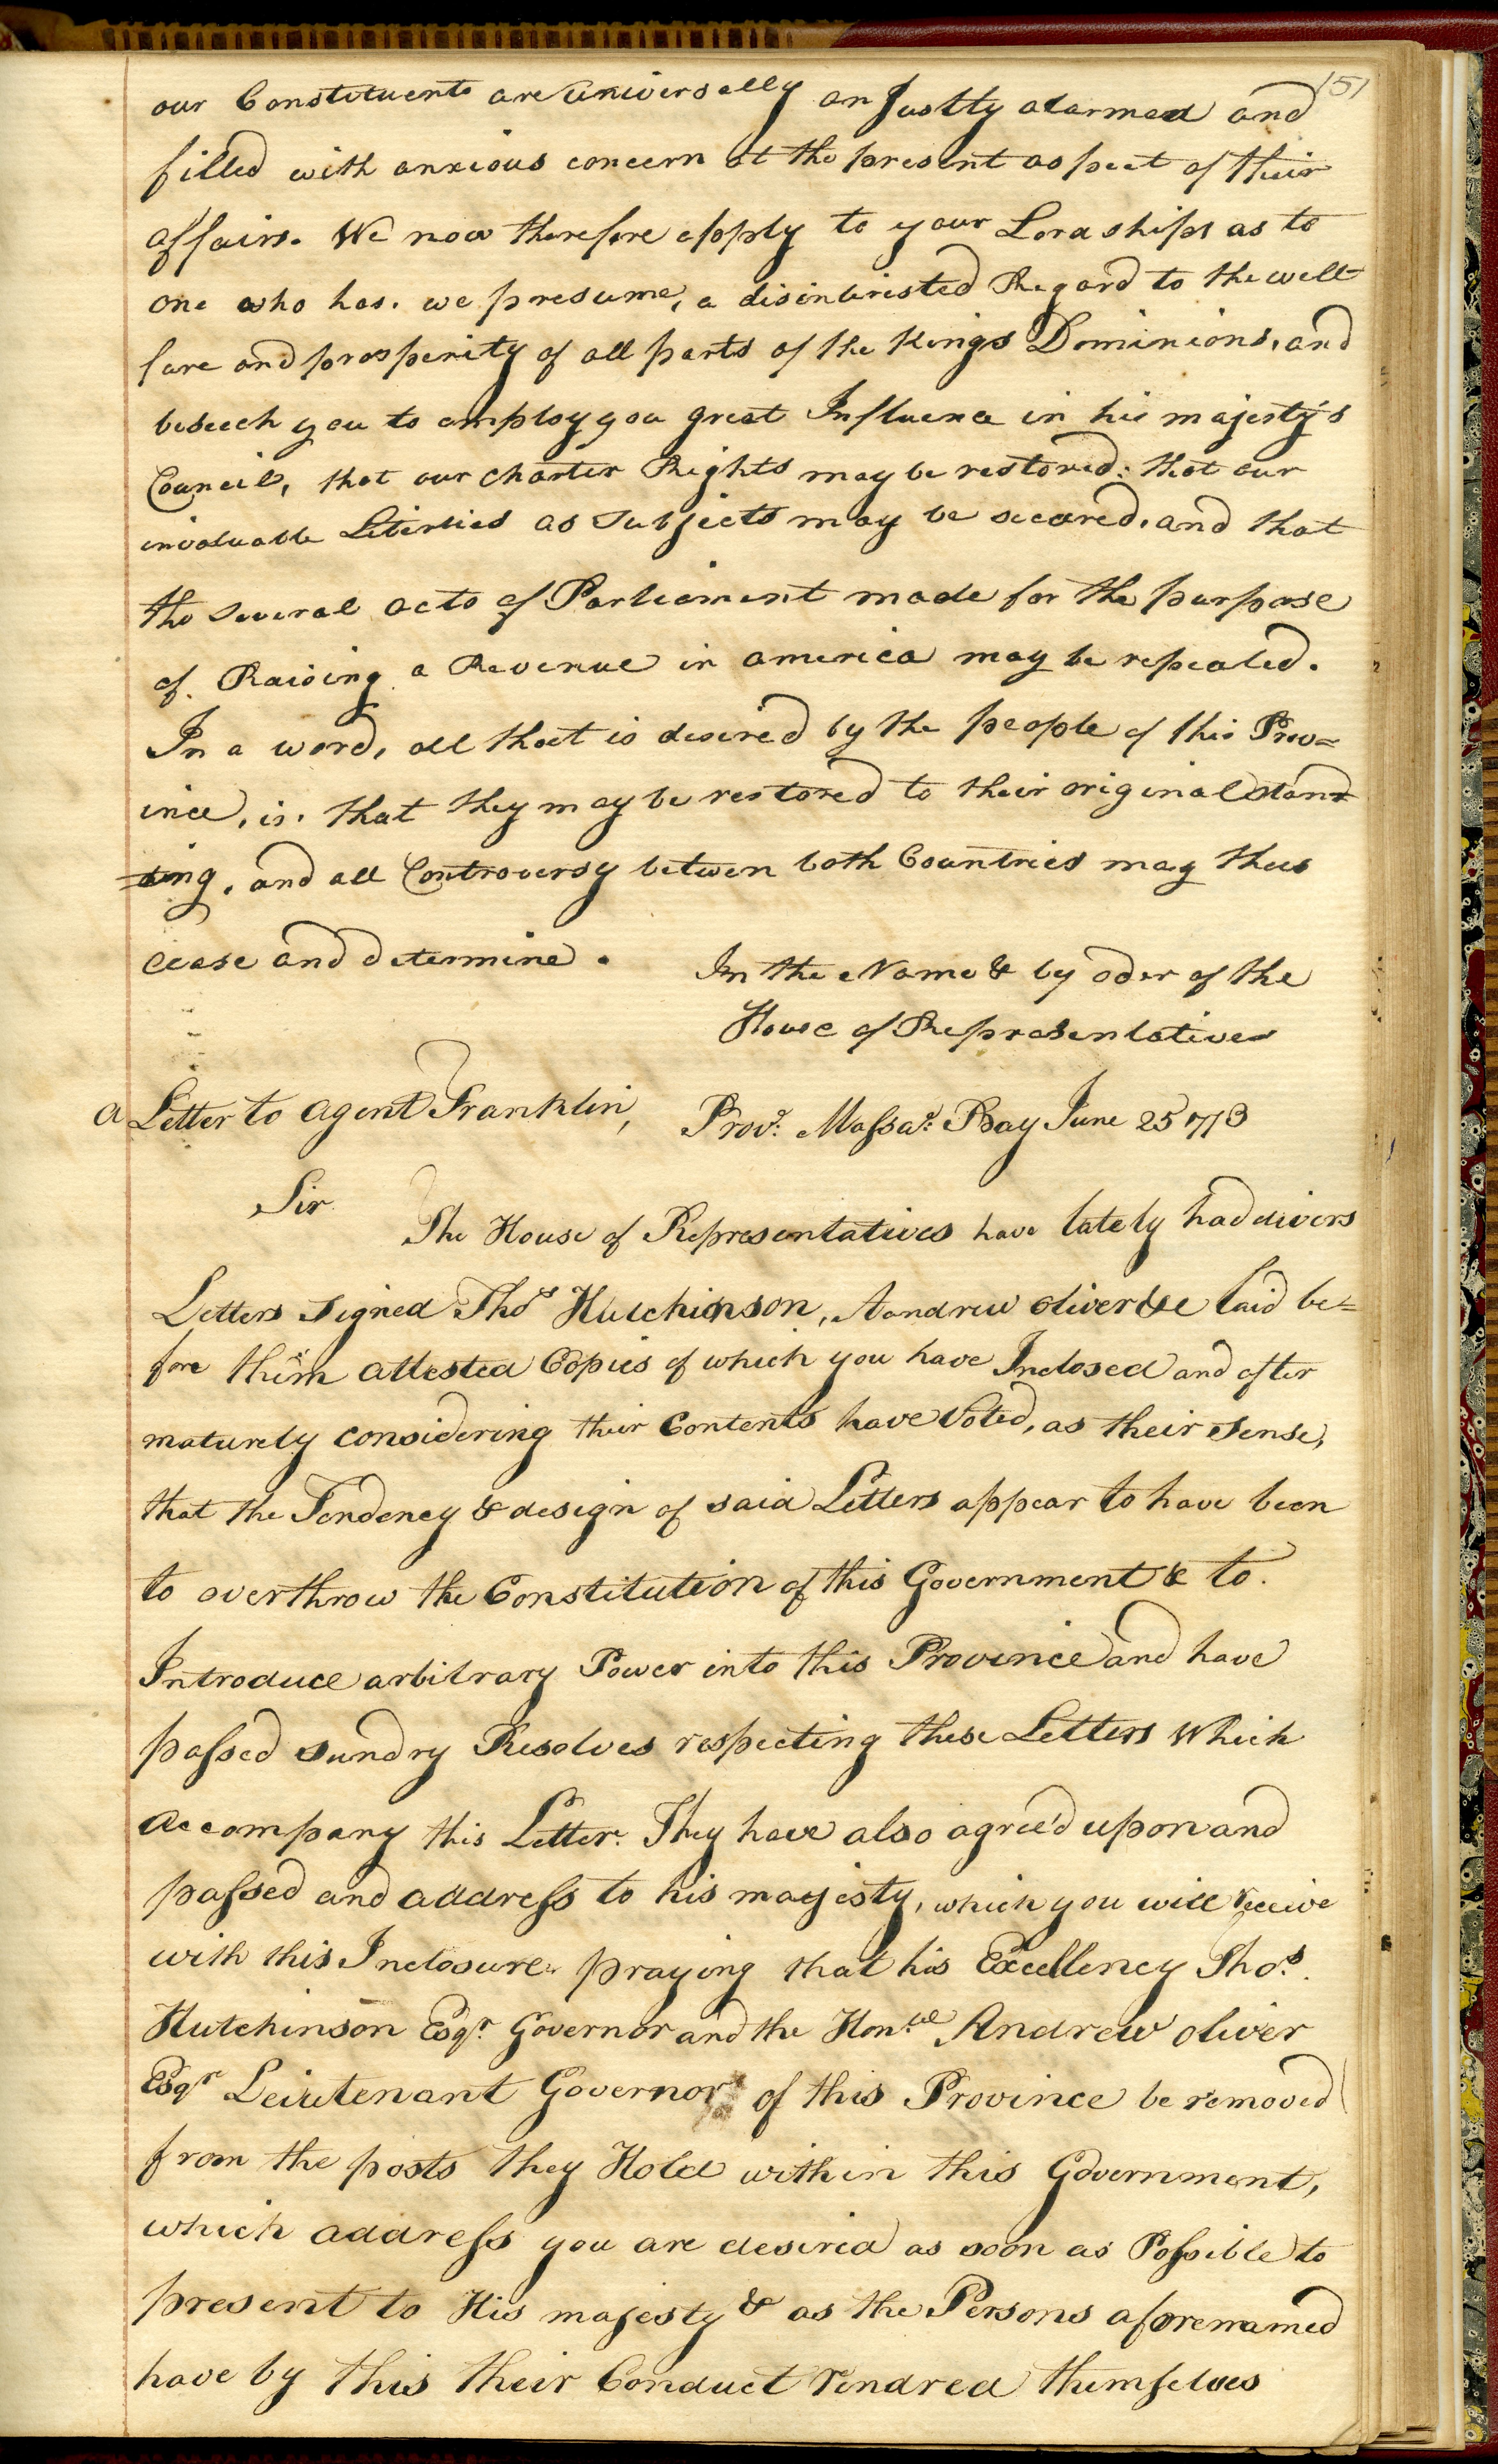 151
our Constituents are universally an Justly alarmed and
filled with anxious concern at the present aspect of their
affairs. We now therefore apply to your Lordships as to
one who has. we presume, a disinterested Regard to the well
fare and prosperity of all parts of the Kings Dominions, and
beseech you to employ you great Influence in his majesty's
Council, that our charter Rights may be restored: that our
invaluable Liberties as Subjects may be secured, and that
the several acts of Parliament made for the purpose
of Raising a Revenue in america may be repealed.
In a word, all that is desired by the people of this Prov=
ince, is. that they may be restored to their original stand
=ing, and all Controversy betwen both Countries may thus
cease and determine.
In the Name & by oder of the
House of Representatives
a Letter to agent Franklin,
Prov.e Massa.s Bay June 25 1773
Sir
The House of Representatives have lately had divers
Letters Signed Thos Hutchinson, Aandrew oliver &c laid be=
fore them attested Copies of which you have Inclosed and after
maturely considering their Contents have Voted, as their Sense,
that the Tendency & design of said Letters appear to have been
to overthrow the Constitution of this Government & to.
Introduce arbitrary Power into this Province and have
passed sundry Resolves respecting these Letters Which
accompany this Letter. They have also agree'd upon and
passed and address to his majesty, which you will receive
with this Inclosure praying that his Excellency Thos.
Hutchinson Esqr. Governor and the Hon.ble Andrew oliver
Esqr Leiutenant Governor of this Province be removed
from the posts they Hold within this Government,
which address you are desired as soon as Possible to
present to His majesty & as the Persons aforenamed
have by this their Conduct rendred themselves